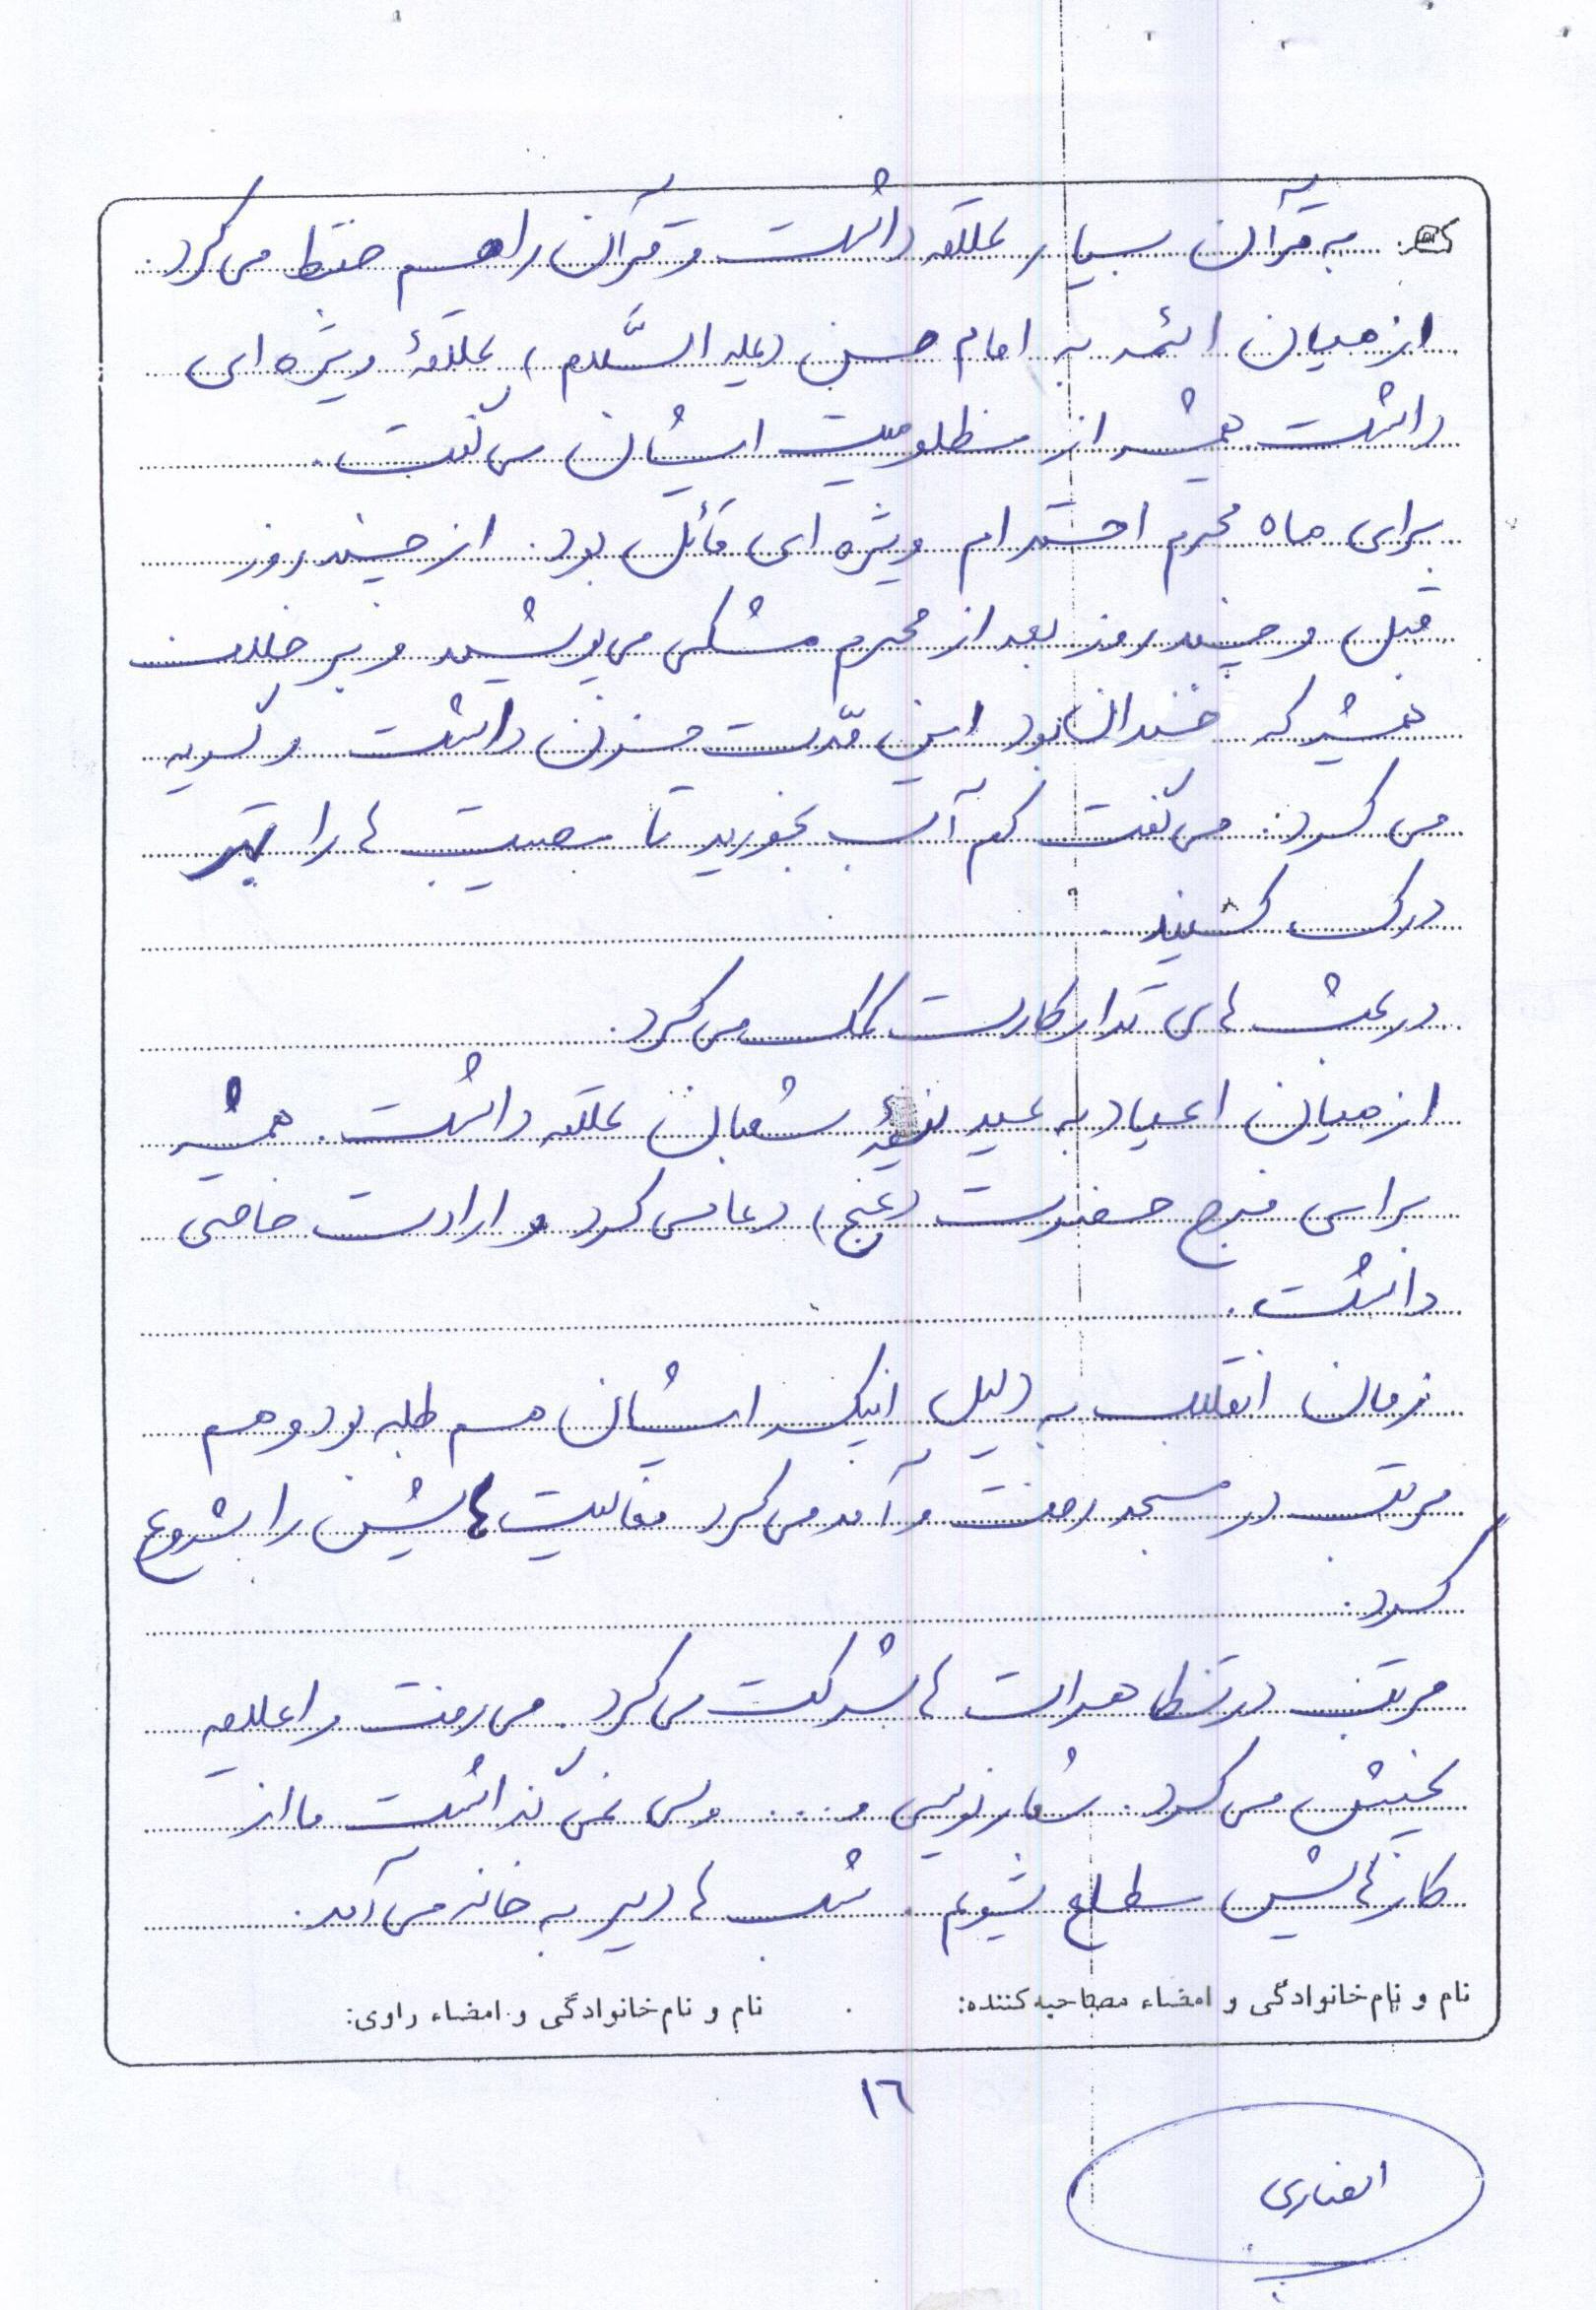 به قرآن بسیار علاقه داشت و قرآن را هم حفظ می کرد.
از میان ائمه به امام حسین (علیه السّلام) علاقۀ ویژه ای
داشت همیشه از مظلومیت ایشان می گفت.
برای ماه محرم احترام ویژه ای قائل بود. از چند روز
قبل و چند روز بعد از محرم مشکی می پوشید و بر خلاف
همیشه که خندان بود این مدّت حزن داشت و گریه
می کرد. می گفت کم آب بخورید تا مصیبت ها را بهتر
درک کنید.
در بخش های تدارکات کمک می کرد.
از میان اعیاد به عید نیمۀ شعبان علاقه داشت. همیشه
برای فرج حضرت (عج) دعا می کرد و ارادت خاصی
داشت.
زمان انقلاب به دلیل اینکه ایشان هم طلبه بود و هم
مرتب در مسجد رفت و آمد می کرد فعالیت هایش را شروع
کرد.
مرتب در تظاهرات ها شرکت می کرد. می رفت و اعلامیه
پخش می کرد. شعار نویسی و... ولی نمی گذاشت ما از
کارهایش مطلع شویم. شب ها دیر به خانه می آمد.
نام و نام خانوادگی و امضاء مصاحبه کننده: نام و نام خانوادگی و امضاء راوی:
١٦
انصاری